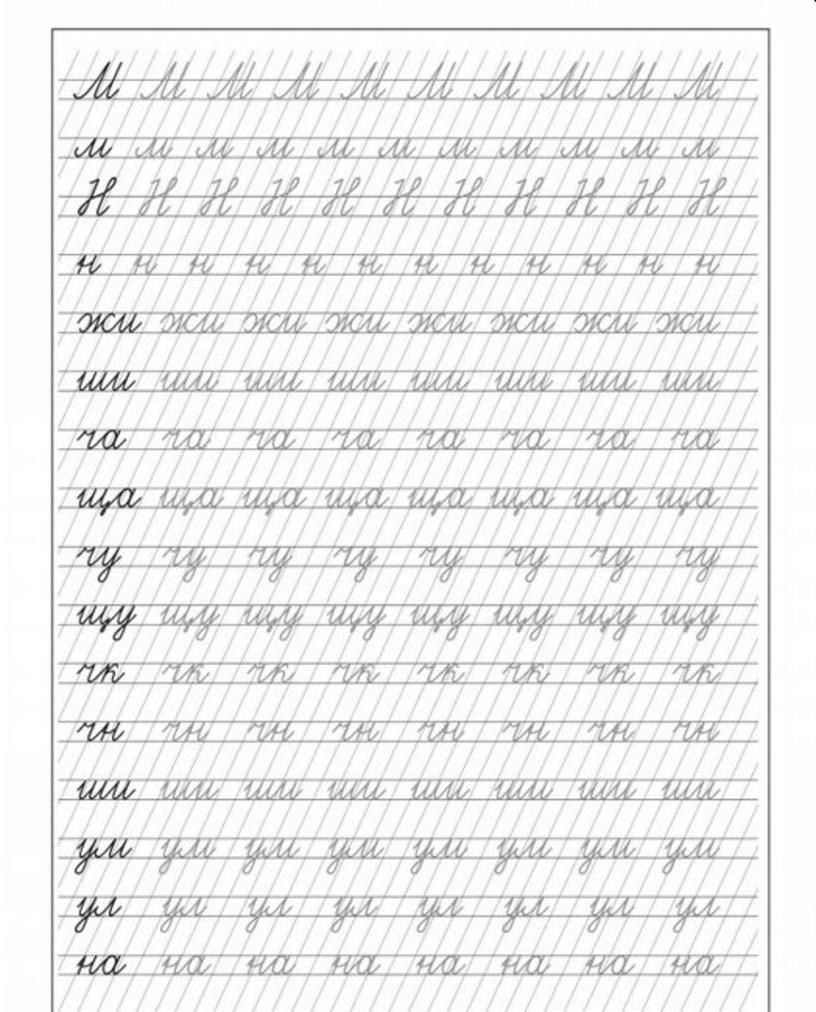 М М М М М М М М М М
м м м м м м м м м м м
Н Н Н Н Н Н Н Н Н Н Н
н н н н н н н н н н н н
жи жи жи жи жи жи жи жи
ши ши ши ши ши ши ши ши
ча ча ча ча ча ча ча ча
ща ща ща ща ща ща ща ща
чу чу чу чу чу чу чу чу
щу щу щу щу щу щу щу щу
чк чк чк чк чк чк чк чк
чн чн чн чн чн чн чн чн
ши ши ши ши ши ши ши ши
ум ум ум ум ум ум ум ум
ул ул ул ул ул ул ул ул
на на на на на на на на